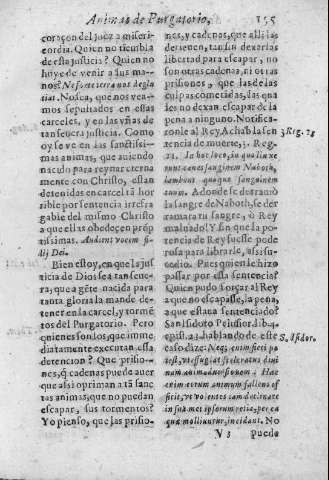 Animas de Purgatorio,
155
coraçon del juez a miseri-
cordia. Quien no tiembla
de esta justicia? Quien no
huye de venir a sus ma-
nos?
No sea, que nos vea-
mos sepultados en essas
carceles, y en las vñas de
tan seuera justicia. Como
oy se ve en las santissi-
mas animas, que auiendo
nacido para reynar eterna
mente con Christo, estan
detenidas en carcel tã hor
rible por sentencia irrefra
gable del mismo Christo
a que ellas obedecen prõp
tissimas. Audient vocem fi-
lij Dei.
Bien estoy, en que la jus
ticia de Dios sea tan seue-
ra, que a gẽte nacida para
tanta gloria la mande de-
tener en la carcel, y tormẽ
tos del Purgatorio. Pero
quienes son los, que imme
diatamente executan essa
detencion? Que prisio-
nes, q̃ cadenas puede auer
que assi opriman a tã sanc
tas animas, que no puedan
escapar, sus tormentos?
Yo pienso, que las prisio
nes, y cadenas, que alli las
detienen, tan sin dexarlas
libertad para escapar, no
son otras cadenas, ni otras
prisiones, que las de las
culpas cometidas, las qua
les no dexan escapar de la
pena a ninguno. Notifica-
ronle al Rey Achab la sen
tencia de muerte, 3. Reg.
21. In hoc loco, in quo linxe
runt canes sanguinem Naboth,
lambent quoque sanguinem
tuum. Adonde se derramò
la sangre de Naboth, se der
ramara tu sangre, ò Rey
maluado! Y en que la po-
tencia de Rey fuesse pode
rosa para librarle,
Pues quien le hizo
passar por essa sentencia?
Quien pudo forçar al Rey
a que no escapasse, la pena,
a que estaua sentenciado?
San Isidoto Pelusior lib. 4.
epist. 23. hablando de este
caso dize: Neque enim fieri po
test, vt effugiat sceleratus diui
num animaduersionem. Hae
enim
in sua met ipsorum retia, per ea
quæ moliuntur, incidant. No
3. Reg. 21
S. Isidor.
V 3 puede